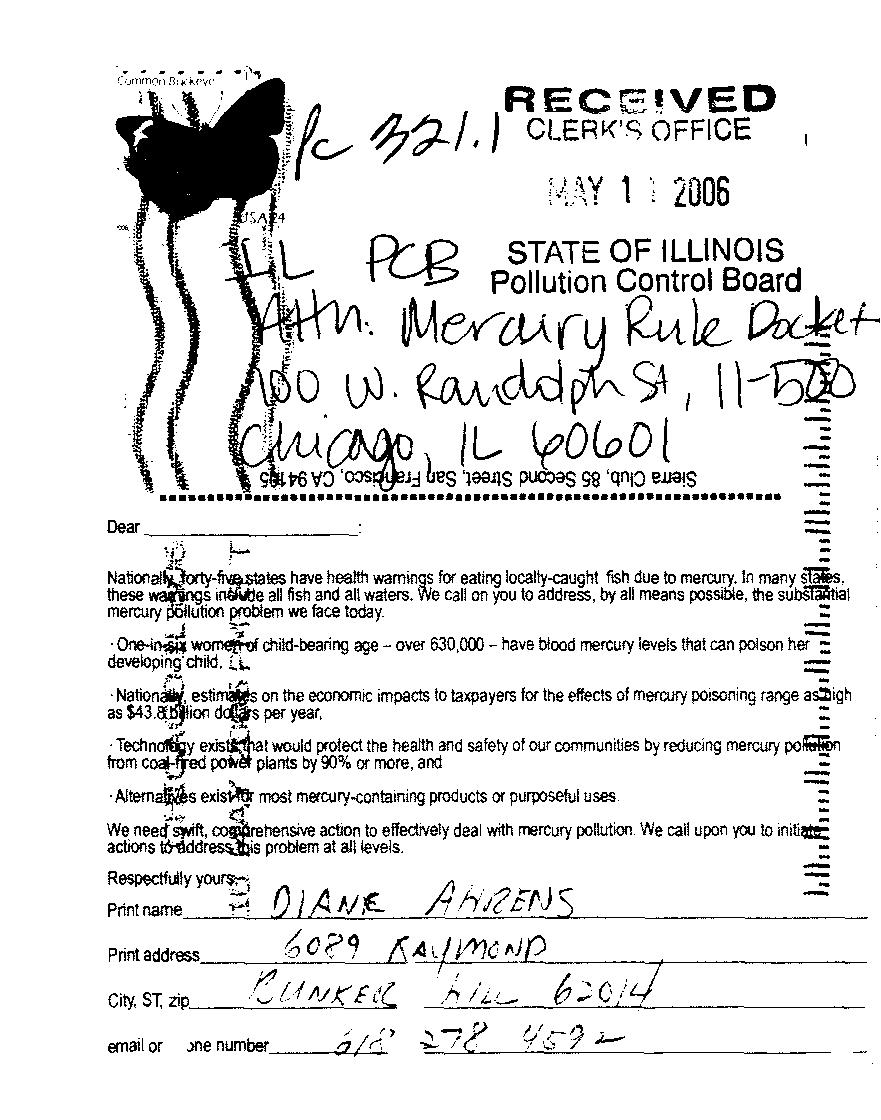 Common Buckeye
Pc 321.1
RECEIVED
CLERK'S OFFICE
MAY 1 2006
USA 24
IL PCB
STATE OF ILLINOIS
Pollution Control Board
Attn: Mercury Rule Docket
100 W. Randolph St, 11-500
Chicago, IL 60601
Sierra Club, 85 Second Street, San Francisco, CA 94105
Dear :
Nationally, forty-five states have health warnings for eating locally-caught fish due to mercury. In many states,
these warnings include all fish and all waters. We call on you to address, by all means possible, the substantial
mercury pollution problem we face today.
· One-in-six women of child-bearing age – over 630,000 – have blood mercury levels that can poison her
developing child,
· Nationally, estimates on the economic impacts to taxpayers for the effects of mercury poisoning range as high
as $43.8 billion dollars per year,
· Technology exists that would protect the health and safety of our communities by reducing mercury pollution
from coal-fired power plants by 90% or more, and
· Alternatives exist for most mercury-containing products or purposeful uses.
We need swift, comprehensive action to effectively deal with mercury pollution. We call upon you to initiate
actions to address this problem at all levels.
Respectfully yours,
Print name DIANE AHRENS
Print address 6089 RAYMOND
City, ST, zip BUNKER HILL 62014
email or one number 618 278 4592